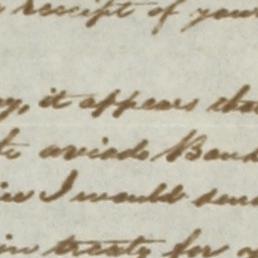 receipt of your
it appears that
Band
I would send
in treaty for